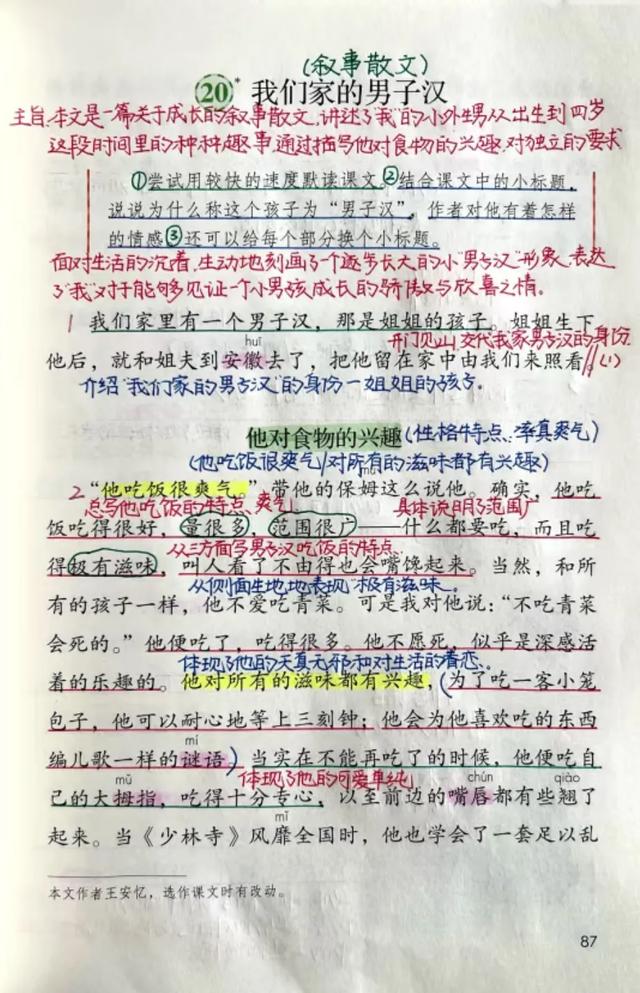 (叙事散文)
20* 我们家的男子汉
主旨:本文是一篇关于成长的叙事散文,讲述了"我"的小外甥从出生到四岁
这段时间里的种种趣事,通过描写他对食物的兴趣、对独立的要求
①尝试用较快的速度默读课文②结合课文中的小标题,
说说为什么称这个孩子为“男子汉”,作者对他有着怎样
的情感③还可以给每个部分换个小标题。
面对生活的沉着,生动地刻画了个逐步长大的小"男子汉"形象,表达
了"我"对于能够见证一个小男孩成长的骄傲与欣喜之情。
1 我们家里有一个男子汉,那是姐姐的孩子。姐姐生下
开门见山,交代我家男子汉的身份
huī
他后,就和姐夫到安徽去了,把他留在家中由我们来照看。//(1)
介绍"我们家的男子汉"的身份—姐姐的孩子。
他对食物的兴趣(性格特点:率真爽气)
(他吃饭很爽气/对所有的滋味都有兴趣)
mǔ
2 “他吃饭很爽气。”带他的保姆这么说他。确实,他吃
总写他吃饭的特点:爽气 具体说明了范围广
饭吃得很好,量很多,范围很广——什么都要吃,而且吃
从三方面写男子汉吃饭的特点.
得极有滋味,叫人看了不由得也会嘴馋起来。当然,和所
从侧面生地地表现"极有滋味"。
有的孩子一样,他不爱吃青菜。可是我对他说:“不吃青菜
会死的。”他便吃了,吃得很多。他不愿死,似乎是深感活
体现了他的天真无邪和对生活的着恋。
着的乐趣的。他对所有的滋味都有兴趣,(为了吃一客小笼
包子,他可以耐心地等上三刻钟;他会为他喜欢吃的东西
mí
编儿歌一样的谜语)当实在不能再吃了的时候,他便吃自
体现了他的可爱单纯
mǔ chún qiào
己的大拇指,吃得十分专心,以至前边的嘴唇都有些翘了
mǐ
起来。当《少林寺》风靡全国时,他也学会了一套足以乱
本文作者王安忆,选作课文时有改动。
87